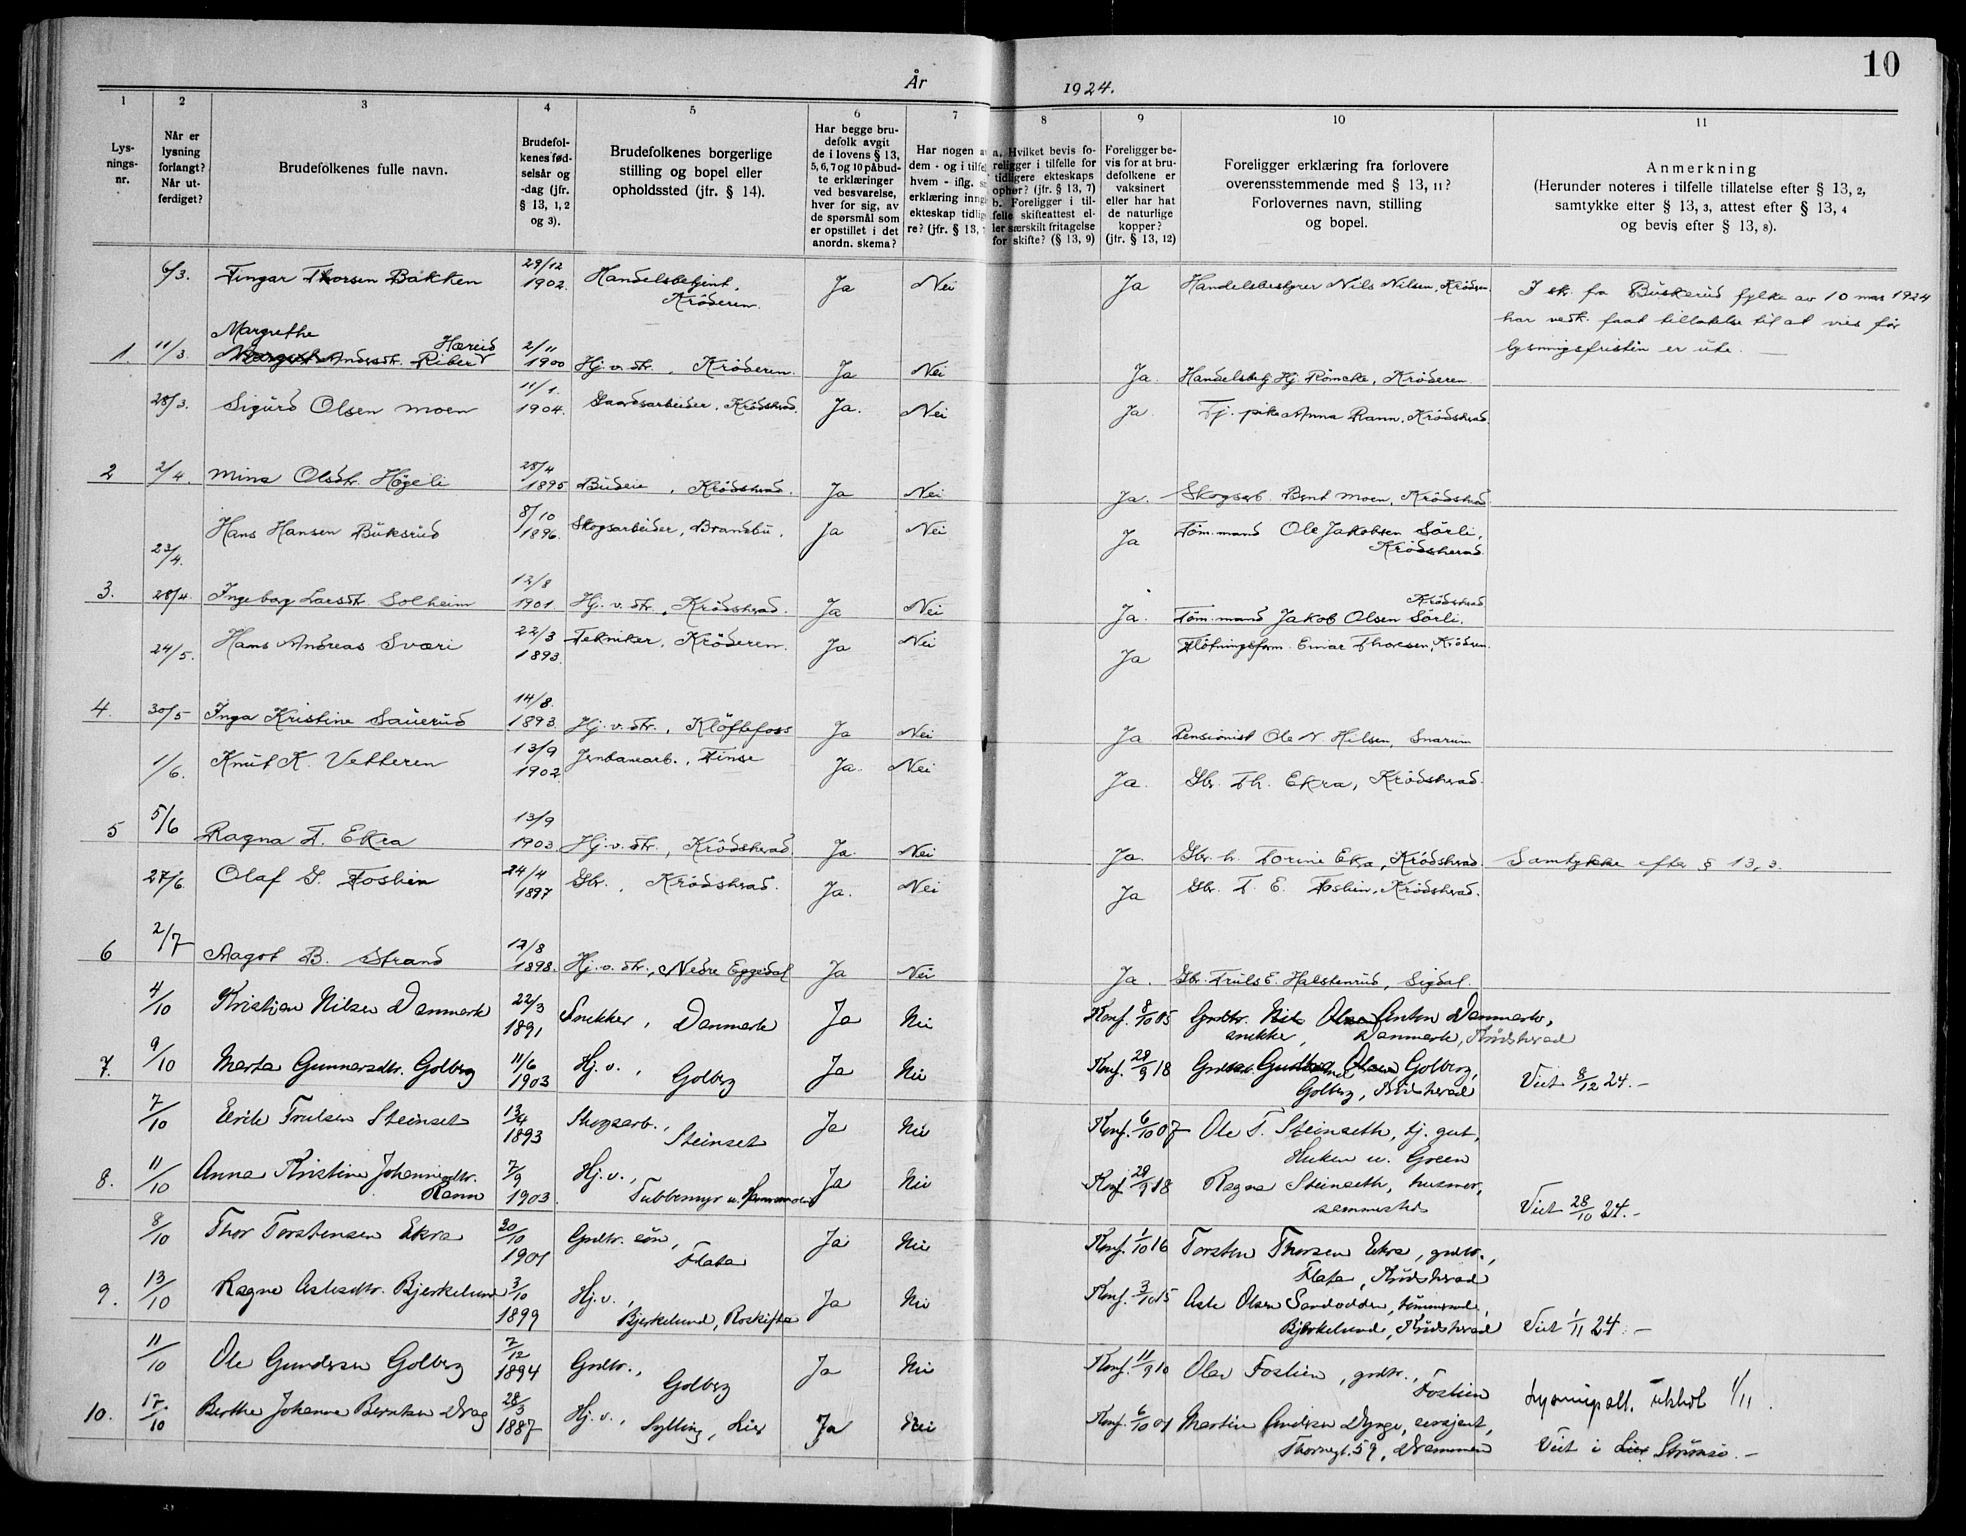 10
År 1924.
1 2 3 4 5 6 7 8 9 10 11
Lys-
nings-
nr.
Når er
lysning
forlangt?
Når ut-
ferdiget?
Brudefolkenes fulle navn.
Brudefol-
kenes fød-
selsår og
-dag (jfr.
§ 13, 1, 2
og 3).
Brudefolkenes borgerlige
stilling og bopel eller
opholdssted (jfr. § 14).
Har begge bru-
defolk avgit
de i lovens § 13,
5, 6, 7 og 10 påbud-
te erklæringer
ved besvarelse,
hver for sig, av
de spørsmål som
er opstillet i det
anordn. skema?
Har nogen a
dem - og i tilfel
hvem - iflg. s
erklæring inng
ekteskap tidlig
re? (jfr. § 13,
a. Hvilket bevis fo-
religger i tilfelle for
tidligere ekteskaps
ophør? (jfr. § 13, 7)
b. Foreligger i til-
felle skifteattest el-
ler særskilt fritagelse
for skifte? (§ 13, 9)
Foreligger be-
vis for at bru-
defolkene er
vaksinert
eller har hat
de naturlige
kopper?
(jfr. § 13, 12)
Foreligger erklæring fra forlovere
overensstemmende med § 13, 11?
Forlovernes navn, stilling
og bopel.
Anmerkning
(Herunder noteres i tilfelle tillatelse efter § 13, 2,
samtykke efter § 13, 3, attest efter § 13, 4
og bevis efter § 13, 8).
6/3. Fingar Thorsen Bakken 29/12 1902. Handelsbetjent, Krøderen. Ja Nei Ja Handelsbestyrer Nils Nilsen, Krøderen
I skr. fra Buskerud fylke av 10 mars 1924
har vedk. faat tillatelse til at vies før
lysningsfristen er ute.
1 11/3. Margrethe Andersdtr. Riber Hæreid 2/11 1900 Hj. v. dtr., Krøderen. Ja Nei Ja. Handelsbetj. Hj. Römcke, Krøderen
28/3. Sigurd Olsen Moen 11/1. 1904. Gaardsarbeider, Krødsherad. Ja. Nei Ja. Tj. pike Anna Rann, Krødsherad.
2 2/4. Mina Olsdtr. Høgeli 28/4 1895 Budeie, Krødsherad. Ja Nei Ja. Skogsarb. Bent Moen, Krødsherad
23/4. Hans Hansen Buksrud 8/10 1896. Skogsarbeider, Brandbu. Ja Nei Ja Tøm.mand Ole Jakobsen Sørli,
Krødsherad.
3. 28/4. Ingeborg Larsdtr. Solheim 12/8 1901. Hj. v. dtr., Krødsherad. Ja Nei Ja. Tøm.mand Jakob Olsen Sørli. Krødsherad
24/5. Hans Andreas Sværi 22/3 1893. Tekniker, Krøderen. Ja Nei Ja Fløtningsform. Einar Thoresen, Krøderen.
4. 30/5 Inga Kristine Sauerud 14/8. 1893. Hj. v. dtr., Kløftefoss Ja Nei Ja Pensionist Ole N. Hilsen, Snarum
1/6. Knut K. Vetteren 13/9 1902. Jernbanearb., Finse Ja. Nei Ja. Gbr. Th. Ekra, Krødsherad.
5 5/6 Ragna T. Ekra 13/9 1903. Hj. v. dtr., Krødsherad. Ja. Nei Ja. Gbr. h. Torine Ekra, Krødsherad. Samtykke efter § 13, 3.
27/6. Olaf G. Foslien 24/4 1897 Gbr., Krødsherad. Ja. Nei Ja Gbr. T. E. Foslien, Krødsherad.
6 2/7 Aagot B. Strand 12/8 1898. Hj. v. dtr., Nedre Eggedal Ja Nei Ja. Gbr. Truls E. Halstenrud, Sigdal.
4/10 Kristian Nilsen Danmark 22/3 1891 Snekker, Danmark Ja Nei Konf. 8/10 05 Grdbr. Nils Olsen Anton Danmark,
snekker, Danmark, Krødsherad
7. 9/10 Marta Gunnarsdtr. Golberg 11/6 1903 Hj. v., Golberg Ja Nei Konf. 29/9 18 Gunnar Olsen Golberg,
Golberg, Krødsherad Viet 8/12 24. -
7/10 Eirik Trulsen Steinset 13/4 1893 Skogsarb., Steinset Ja Nei Konf. 6/10 07 Ole T. Steinseth, tj. gut,
Huken u. Green
8. 11/10 Anna Kristine Johannesdtr. Rann 7/9 1903. Hj. v., Tubbemyr Ja Nei Konf. 29/9 18 Ragna Steinseth, husmor,
sammesteds Viet 28/10 24. -
8/10 Thor Torstensen Ekra 20/10 1901 Grdbr. søn, Flata Ja Nei Konf. 1/10 16 Torsten Thorsen Ekra, grdbr.,
Flata, Krødsherad
9. 13/10 Ragna Aslesdtr. Bjerkelund 3/10 1899 Hj. v., Bjerkelund, Ja Nei Konf. 3/10 15 Asle Olsen Sandodden, tømmerm.,
Bjerkelund, Krødsherad Viet 1/11 24. -
11/10 Ole Gundersen Golberg 7/12 1894 Grdbr., Golberg Ja Nei Konf. 11/9 10 Olav Foslien, grdbr.,
Foslien Lysningsatt. 1/11.
10. 17/10 Berthe Johanne Berntsen Drag 28/3 1887 Hj. v., Sylling, Lier Ja Nei Konf. 6/10 01 Martin Andersen Dynge, sersjant,
Thornegt. 59, Drammen Viet i Lier Strømsø. -